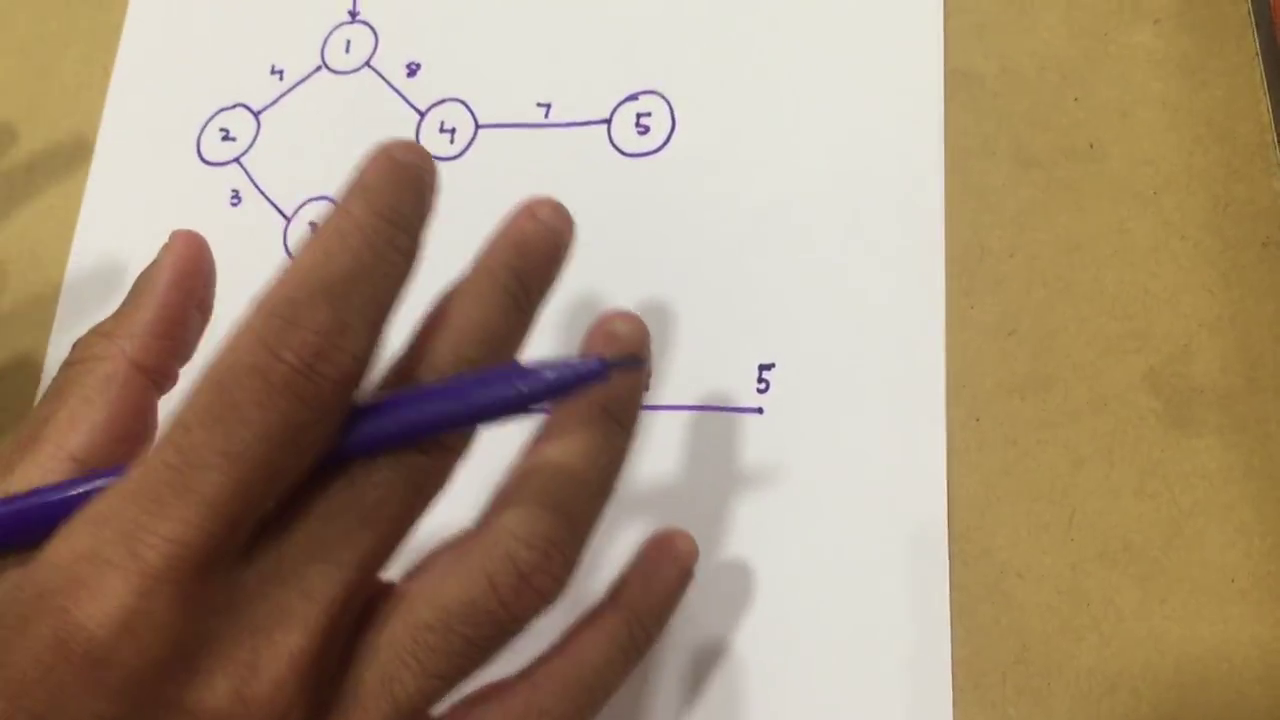 1
4 8
2 4 7 5
3
5